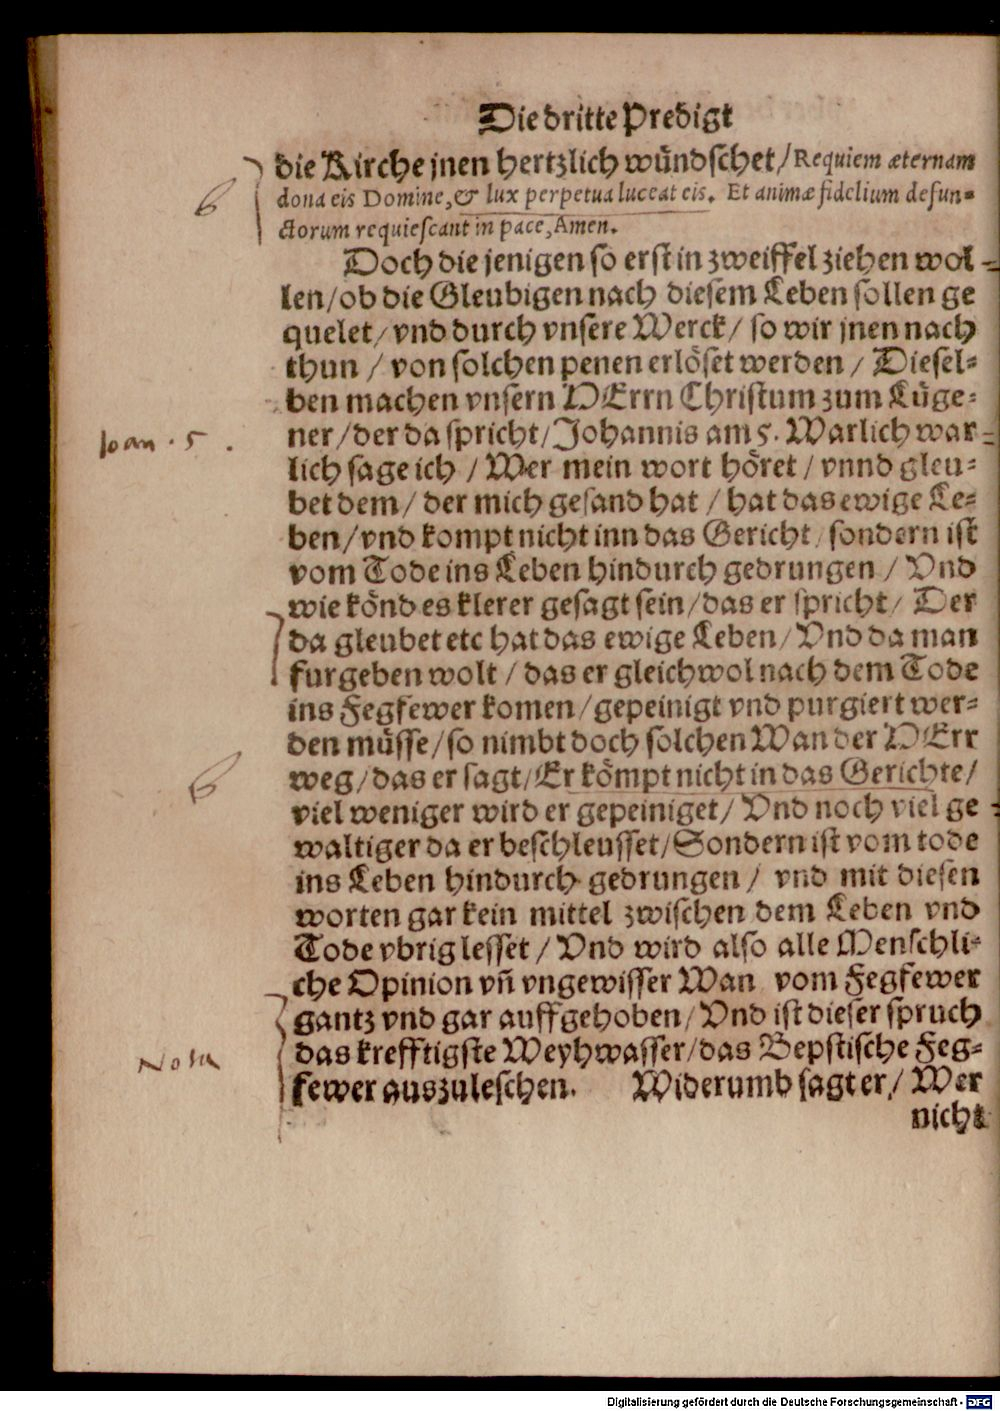 Die dritte Predigt
die Kirche jnen hertzlich wündschet/ Requiem æternam
dona eis Domine, & lux perpetua luceat eis. Et animæ fidelium defun=
ctorum requiescant in pace, Amen.
Doch die jenigen so erst in zweiffel ziehen wol=
len/ob die Gleubigen nach diesem Leben sollen ge
quelet/ vnd durch vnsere Werck/ so wir jnen nach
thun / von solchen penen erlöset werden / Diesel=
ben machen vnsern HErrn Christum zum Lüge=
Joan. 5.
ner/der da spricht/Johannis am 5. Warlich war=
lich sage ich / Wer mein wort höret / vnnd gleu=
bet dem/ der mich gesand hat / hat das ewige Le=
ben/vnd kompt nicht inn das Gericht/ sondern ist
vom Tode ins Leben hindurch gedrungen / Vnd
wie könd es klerer gesagt sein/das er spricht/ Der
da gleubet etc hat das ewige Leben/ Vnd da man
furgeben wolt / das er gleichwol nach dem Tode
ins Fegfewer komen/gepeinigt vnd purgiert wer=
den müsse/so nimbt doch solchen Wan der HErr
weg/das er sagt/Er kömpt nicht in das Gerichte/
viel weniger wird er gepeiniget/ Vnd noch viel ge=
waltiger da er beschleusset/Sondern ist vom tode
ins Leben hindurch gedrungen / vnd mit diesen
worten gar kein mittel zwischen dem Leben vnd
Tode vbrig lesset / Vnd wird also alle Menschli=
che Opinion vñ vngewisser Wan vom Fegfewer
gantz vnd gar auffgehoben/ Vnd ist dieser spruch
Nota
das krefftigste Weyhwasser/das Bepstische Feg=
fewer auszuleschen. Widerumb sagt er/ Wer
nicht
Digitalisierung gefördert durch die Deutsche Forschungsgemeinschaft - DFG